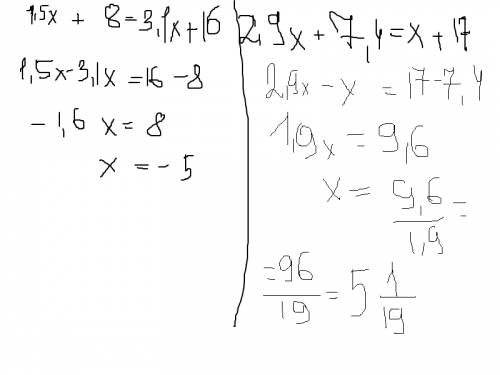 1,5x + 8 = 3,1x + 16
1,5x - 3,1x = 16 - 8
- 1,6 x = 8
x = - 5
2,9x + 7,4 = x + 17
2,9x - x = 17 - 7,4
1,9x = 9,6
x = 9,6/1,9 =
= 96/19 = 5 1/19